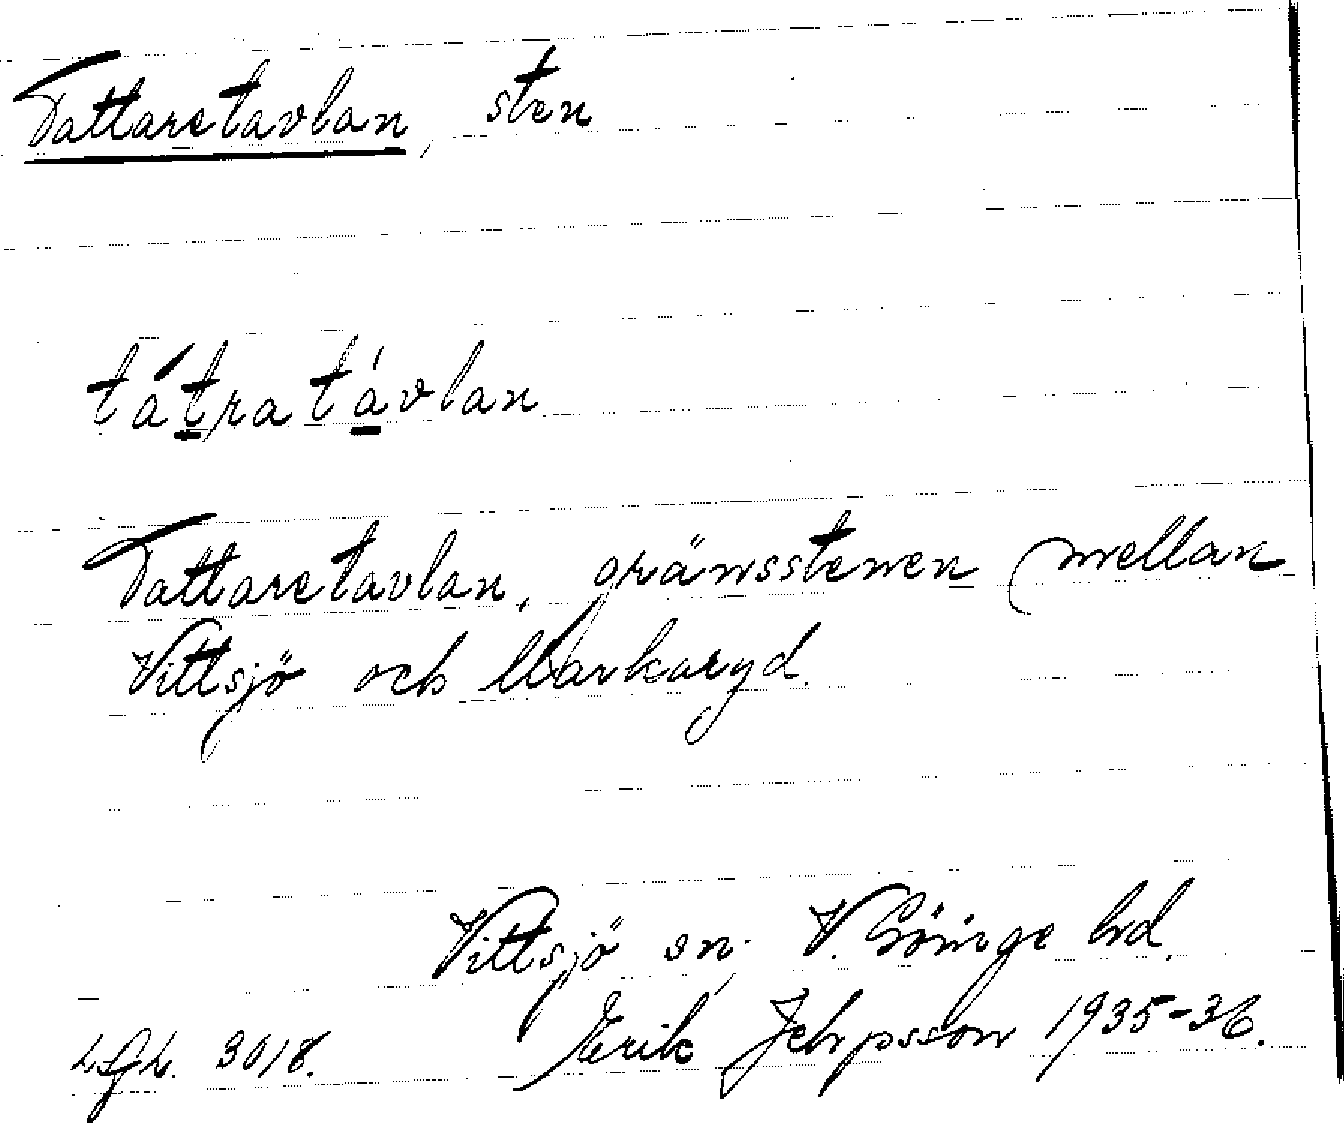 Tattaretavlan, sten
tá̱tratá̱vlan
Tattaretavlan, gränsstenen mellan
Vittsjö och Markaryd.
Vittsjö sn. V. Göinge hd.
3018. Erik Jeppsson 1935-36.